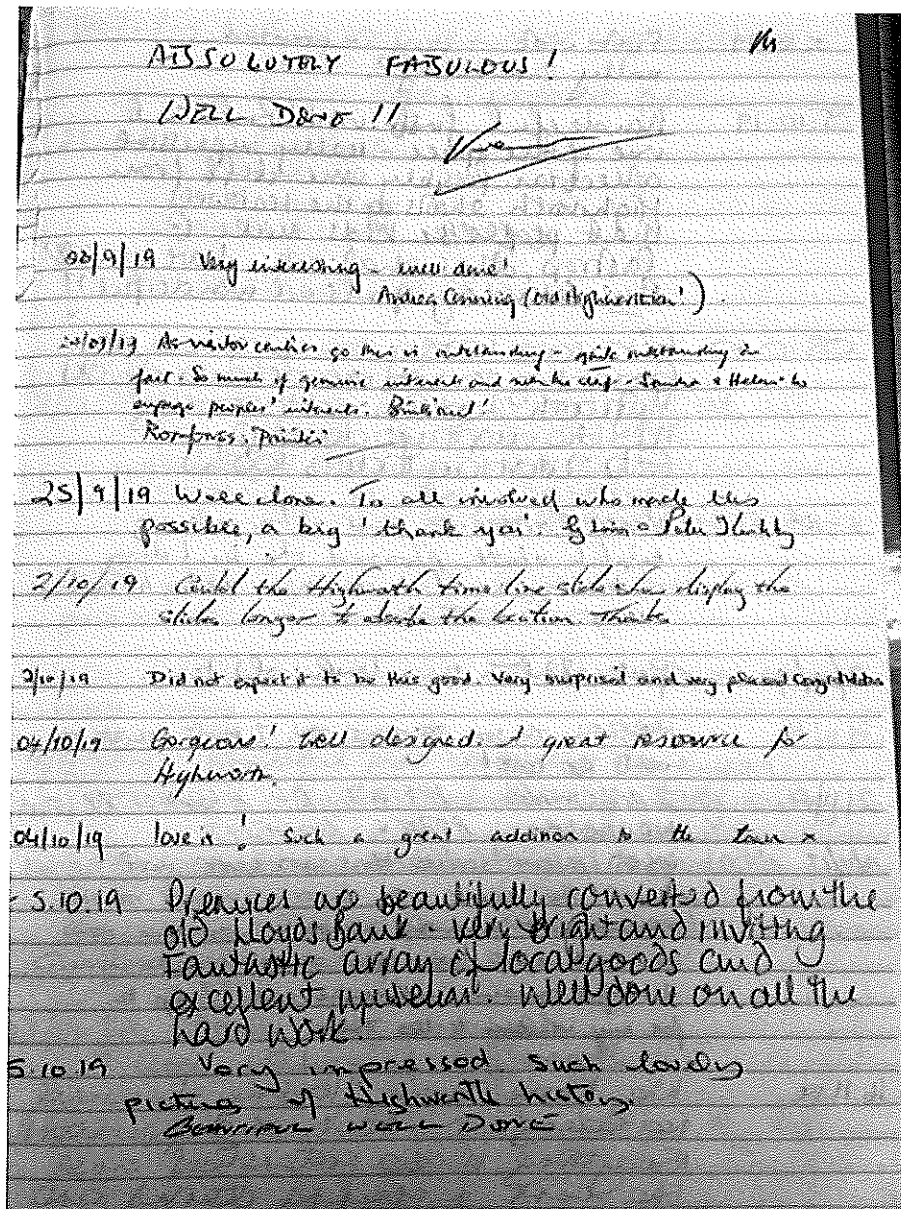 ABSOLUTELY FABULOUS!
WELL DONE!!
/9/19 Very interesting - well done!
Andrea (Old Highworthian!)
As visitor centres go this is outstanding - quite outstanding in
fact. So much of genuine interest and with the staff - Sandra & Helen - to
engage peoples' interests. Brilliant!
25/9/19 Well done. To all involved who made this
possible, a big 'thank you'.
2/10/19 Could the Highworth time line slide show display the
slides longer Thanks
2/10/19 Did not expect it to be this good. Very surprised and very pleased Congratulations
04/10/19 Gorgeous! Well designed. A great resource for
Highworth.
04/10/19 love it! Such a great addition to the town x
5.10.19 Premises are beautifully converted from the
old Lloyds Bank - very bright and inviting
Fantastic array of local goods and
excellent museum. Well done on all the
hard work!
5.10.19 Very impressed such lovely
pictures of Highworth history.
BEAUTIFUL WELL DONE